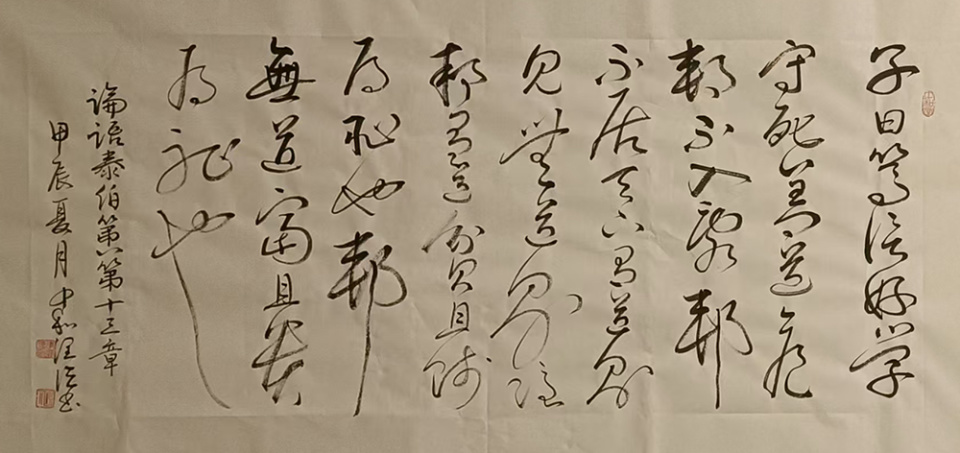 子曰篤信好学
守死善道危
邦不入亂邦
不居天下有道則
見無道則隱
邦有道貧且賤
焉恥也邦
無道富且貴
焉恥也
論語泰伯第八第十三章
甲辰夏月中和汪书